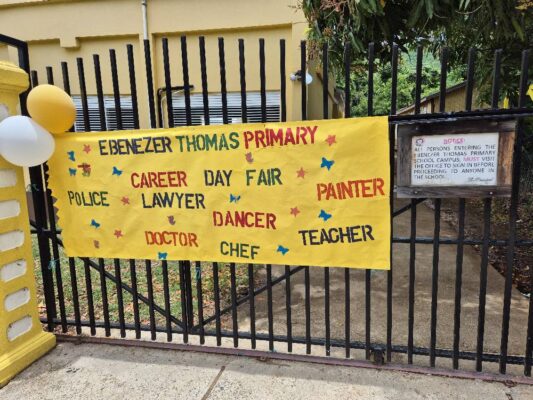 EBENEZER THOMAS PRIMARY
CAREER DAY FAIR
POLICE LAWYER PAINTER
DANCER
DOCTOR CHEF TEACHER
NOTICE
ALL PERSONS ENTERING THE
EBENEZER THOMAS PRIMARY
SCHOOL CAMPUS, MUST VISIT
THE OFFICE TO SIGN IN BEFORE
PROCEEDING TO ANYONE IN
THE SCHOOL.